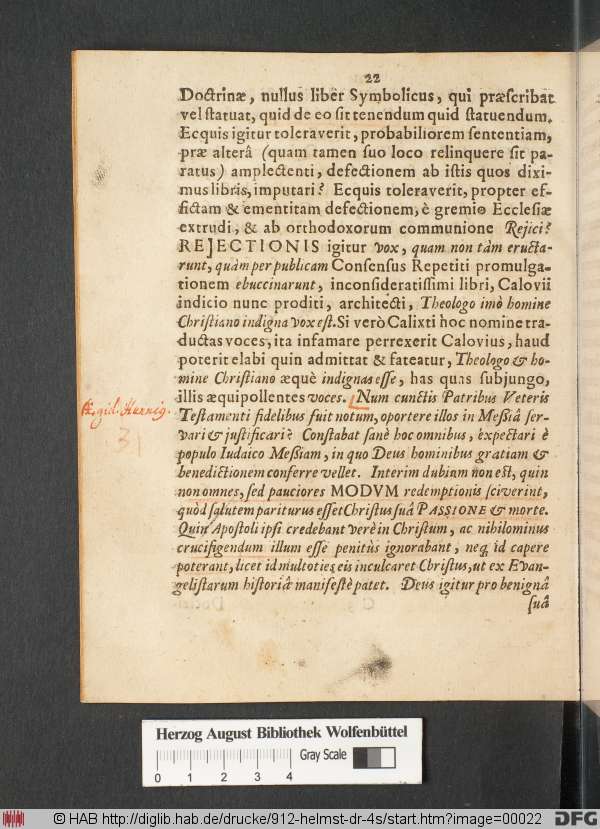 22
Doctrinæ, nullus liber Symbolicus, qui præscribat
vel statuat, quid de eo sit tenendum quid statuendum.
Ecquis igitur toleraverit, probabiliorem sententiam,
præ alterâ (quam tamen suo loco relinquere sit pa-
ratus) amplectenti, defectionem ab istis quos dixi-
mus libris, imputari? Ecquis toleraverit, propter ef-
fictam & ementitam defectionem, è gremio Ecclesiæ
extrudi, & ab orthodoxorum communione Rejici?
REJECTIONIS igitur vox, quam non tàm eructa-
runt, quàm per publicam Consensus Repetiti promulga-
tionem ebuccinarunt, inconsideratissimi libri, Calovii
indicio nunc proditi, architecti, Theologo imò homine
Christiano indigna vox est. Si verò Calixti hoc nomine tra-
ductas voces, ita infamare perrexerit Calovius, haud
poterit elabi quin admittat & fateatur, Theologo & ho-
mine Christiano æquè indignas esse, has quas subjungo,
illis æquipollentes voces. Num cunctis Patribus Veteris
Testamenti fidelibus fuit notum, oportere illos in Messiâ ser-
vari & justificari? Constabat sanè hoc omnibus, expectari è
populo Iudaico Messiam, in quo Deus hominibus gratiam &
benedictionem conferre vellet. Interim dubium non est, quin
non omnes, sed pauciores MODVM redemptionis sciverint,
quòd salutem pariturus esset Christus suâ PASSIONE & morte.
Quin Apostoli ipsi credebant verè in Christum, ac nihilominus
crucifigendum illum esse penitùs ignorabant, neq; id capere
poterant, licet id multoties eis inculcaret Christus, ut ex Evan-
gelistarum historiâ manifestè patet. Deus igitur pro benignâ
suâ
31
Herzog August Bibliothek Wolfenbüttel
Gray Scale
0 1 2 3 4
© HAB http://diglib.hab.de/drucke/912-helmst-dr-4s/start.htm?image=00022
DFG